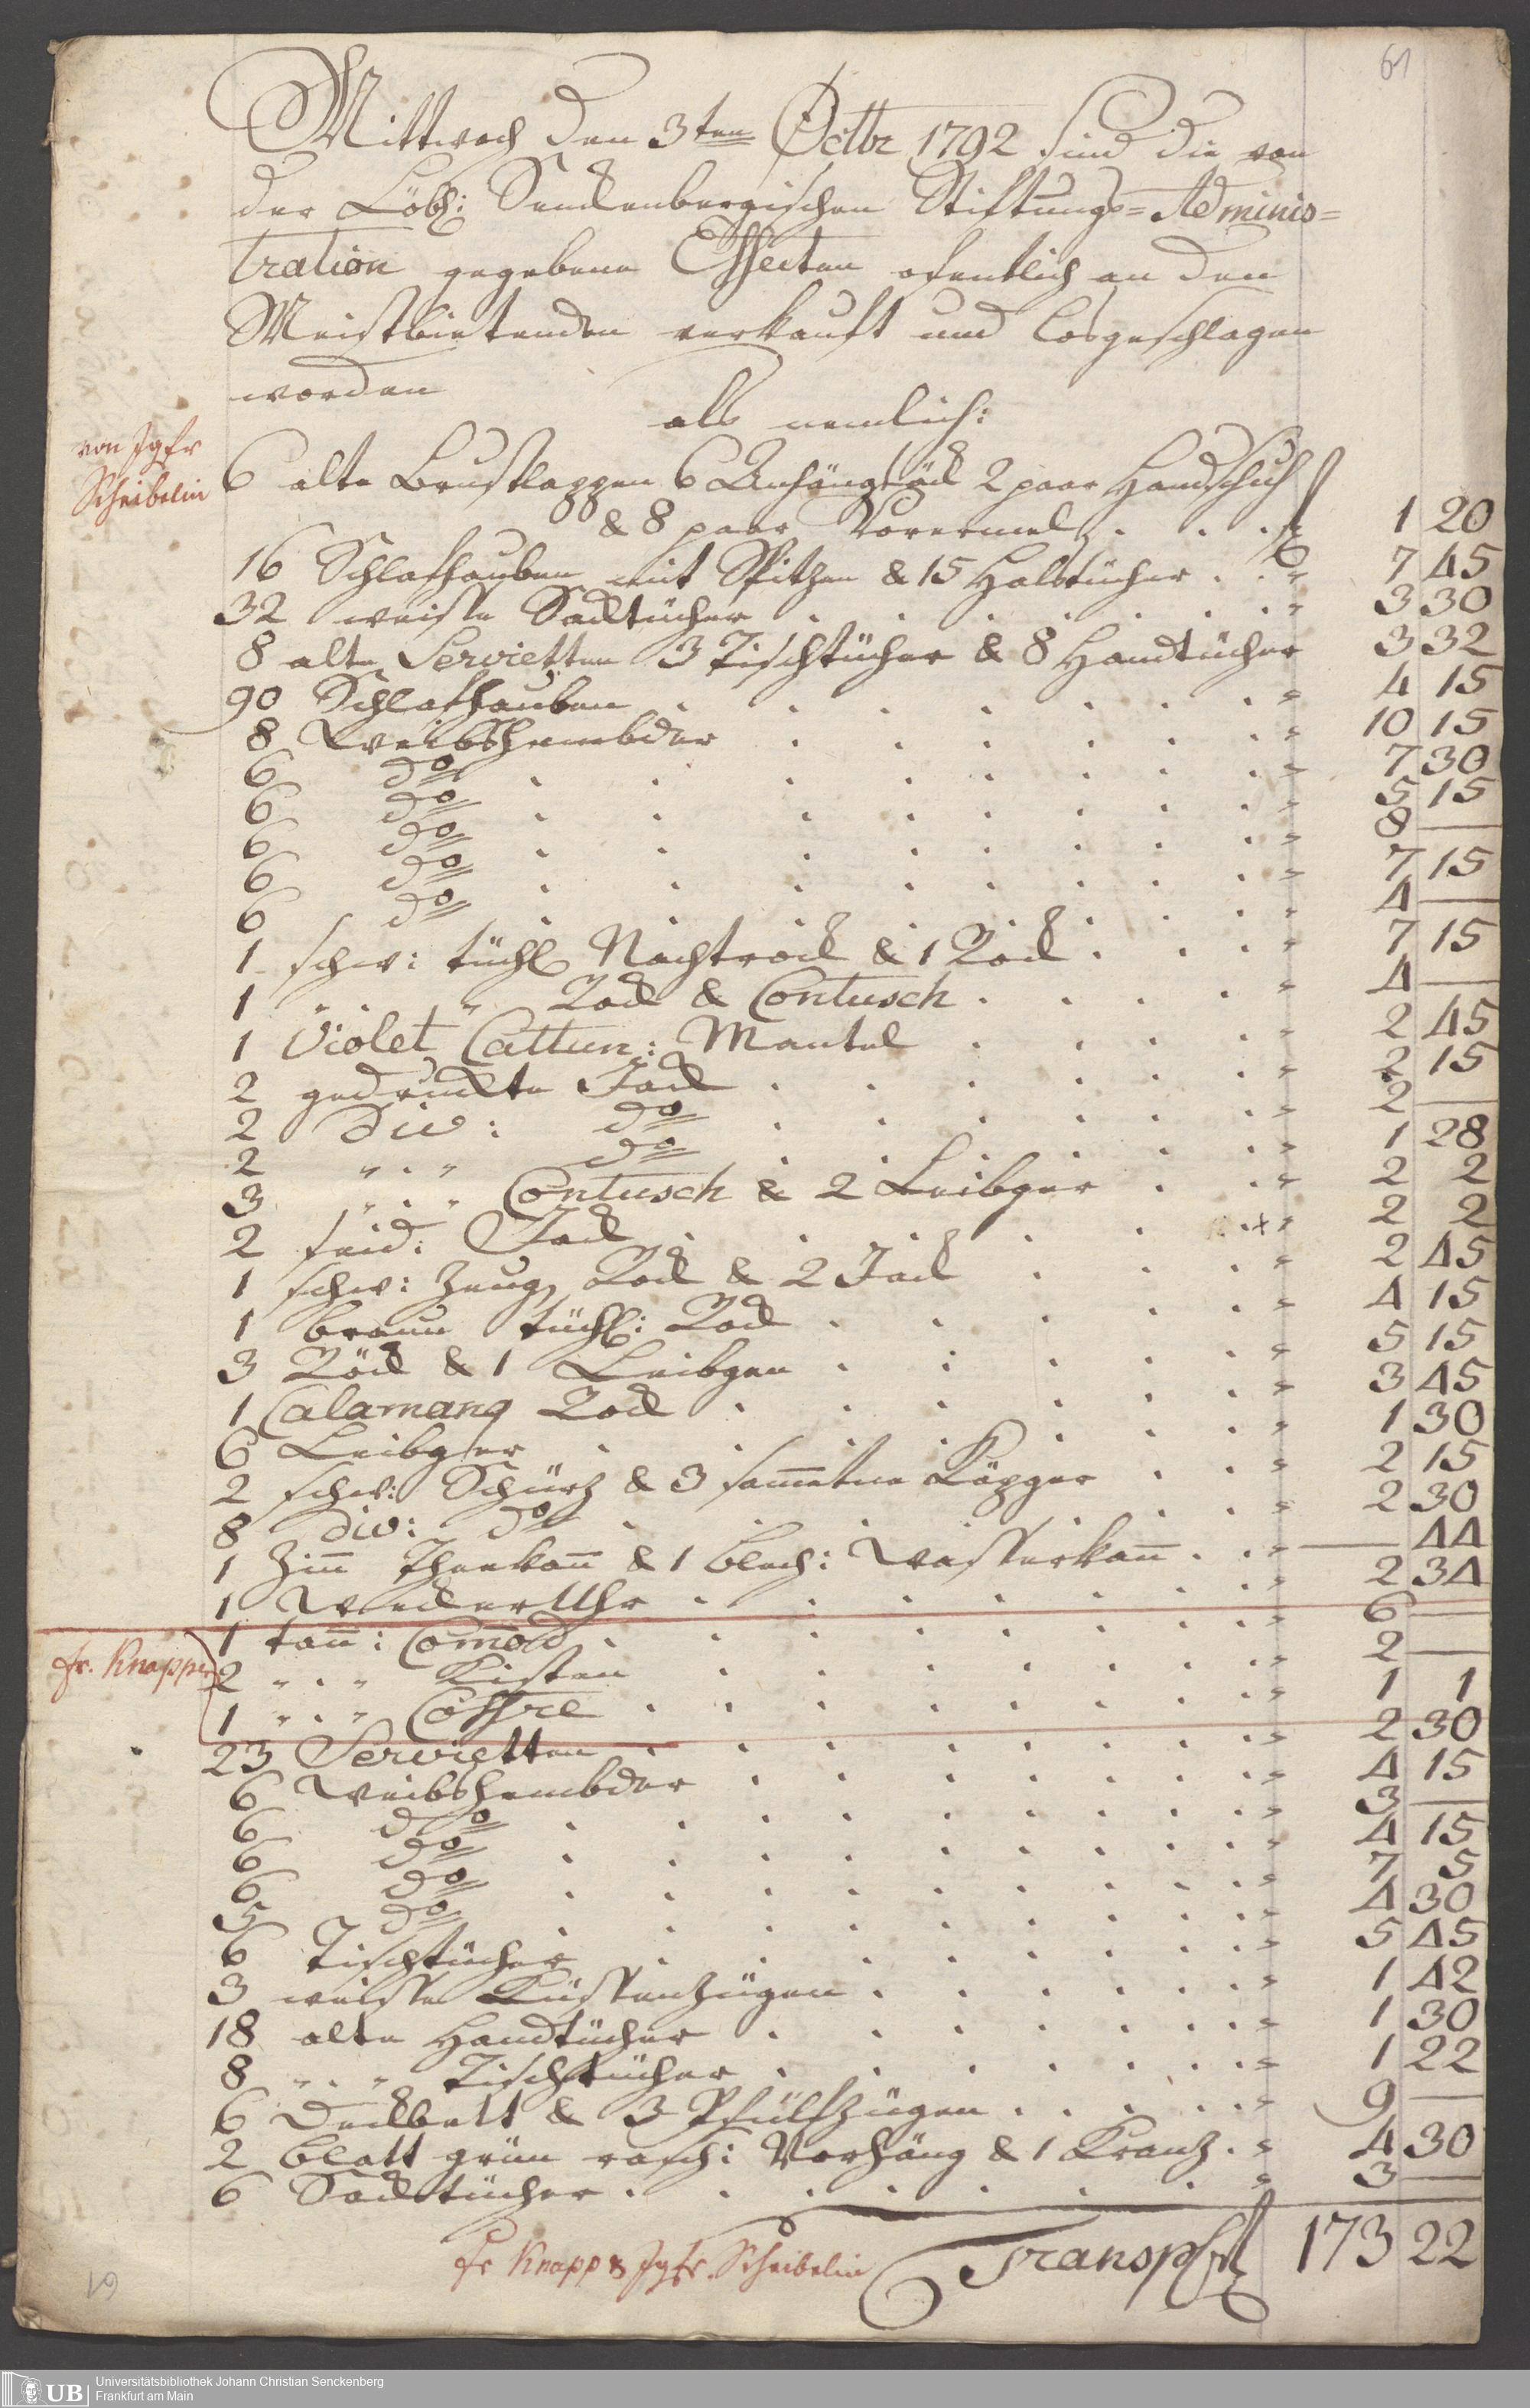 61
Mittwoch den 3ten Octbr 1792 sind die von
der Löbl: Senckenbergischen Stiftungs=Adminis=
tration gegebene Effecten ofentlich an den
Meistbietenden verkauft und losgeschlagen
worden
als nemlich:
von Jgfr
Scheibelin
6 alte Brustlappen 6 Anhängsäck 2 paar Handschuh
& 8 paar Vorermel . . . f 1 20
16 Schlafhauben mit Spitzen & 15 Halstücher . . " 7 45
32 weisse Sacktücher . . . . . . . " 3 30
8 alte Servietten 3 Tischtücher & 8 Handtücher 3 32
90 Schlafhauben . . . . . . . " 4 15
8 Weibshembder . . . . . . " 10 15
6 do . . . . . . . . " 7 30
6 do . . . . . . . . " 5 15
6 do . . . . . . . . " 8 —
6 do . . . . . . . . " 7 15
6 do . . . . . . . . " 4 —
1 schw: tüchl Nachtrock & 1 Rock . . . " 7 15
1 " . " Rock & Contusch . . . . " 4 —
1 Violet Cattun: Mantel . . . . " 2 45
2 gedruckte Jack . . . . . . " 2 15
2 div: do . . . . . . " 2 —
2 " . " do . . . . . . " 1 28
3 " . " Contusch & 2 Leibger . . " 2 2
2 seid: Jack . . . . . . x " 2 2
1 schw: Zeug Rock & 2 Jack . . . " 2 45
1 braun tüchl: Rock . . . . . " 4 15
3 Röck & 1 Leibgen . . . . . " 5 15
1 Calamang Rock . . . . . . " 3 45
6 Leibger . . . . . . . " 1 30
2 schw: Schürz & 3 sammetne Käpger . . " 2 15
8 div: do . . . . . . . " 2 30
1 Zinn Theekann & 1 blech: Wasserkann . . " — 44
1 Wecker Uhr . . . . . . . " 2 34
fr. Knappin
1 tann: Comod . . . . . . . " 6 —
2 " . " Kisten . . . . . . . " 2 —
1 " . " Coffre . . . . . . . " 1 1
23 Servietten . . . . . . . " 2 30
6 Weibshembder . . . . . . . " 4 15
6 do . . . . . . . . " 3 —
6 do . . . . . . . . " 4 15
6 do . . . . . . . . " 7 5
5 do . . . . . . . . " 4 30
6 Tischtücher . . . . . . . " 5 45
3 weisse Küssenzügen . . . . . . " 1 42
18 alte Handtücher . . . . . . . " 1 30
8 " . " Tischtücher . . . . . . " 1 22
6 Deckbett & 3 Pfülfzügen . . . . . " 9 —
2 blatt grün rasch: Vorhäng & 1 Kranz . " 4 30
6 Sacktücher . . . . . . . " 3 —
fr Knapp & Jgfr. Scheibelin Transp f 173 22
61
UB Universitätsbibliothek Johann Christian Senckenberg
Frankfurt am Main